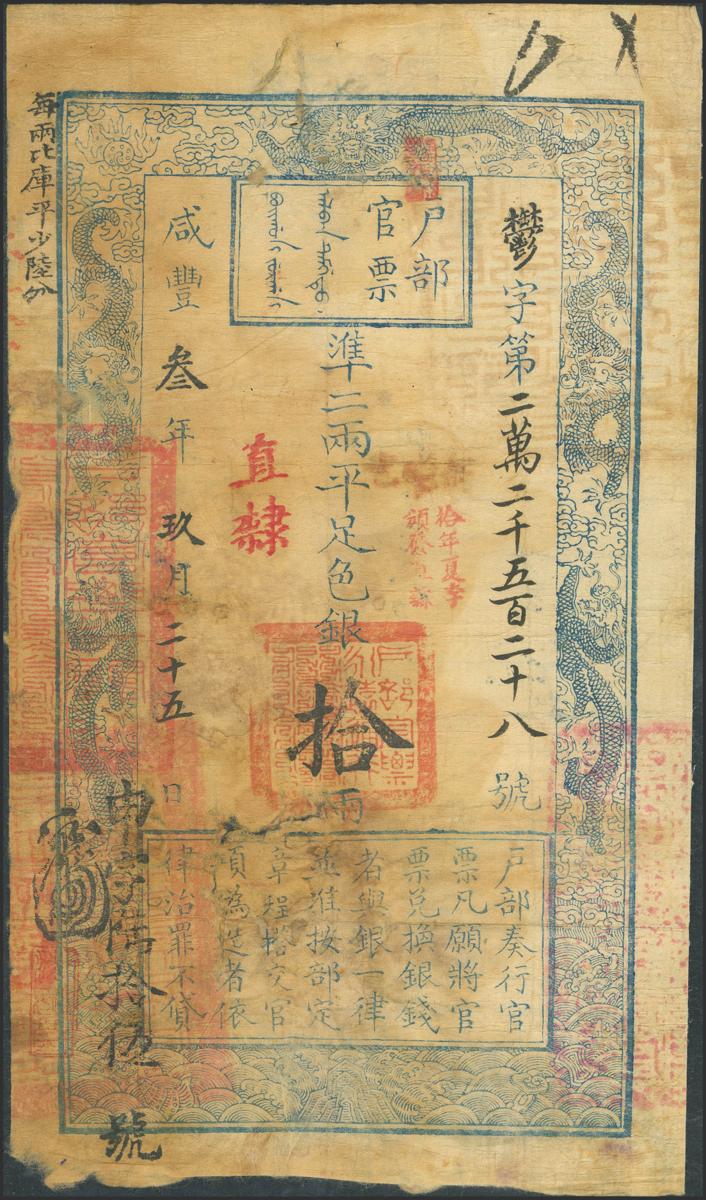 鬱字第二萬二千五百二十八號
户部
官票
準二兩平足色銀拾兩
拾年夏季
頒發直隸
直隸
咸豐叁年玖月二十五日
户部奏行官
票凡願將官
票兑換銀錢
者與銀一律
並准按部定
章程搭交官
項偽造者依
律治罪不貸
每兩比庫平少陸分
申字陸拾伍號